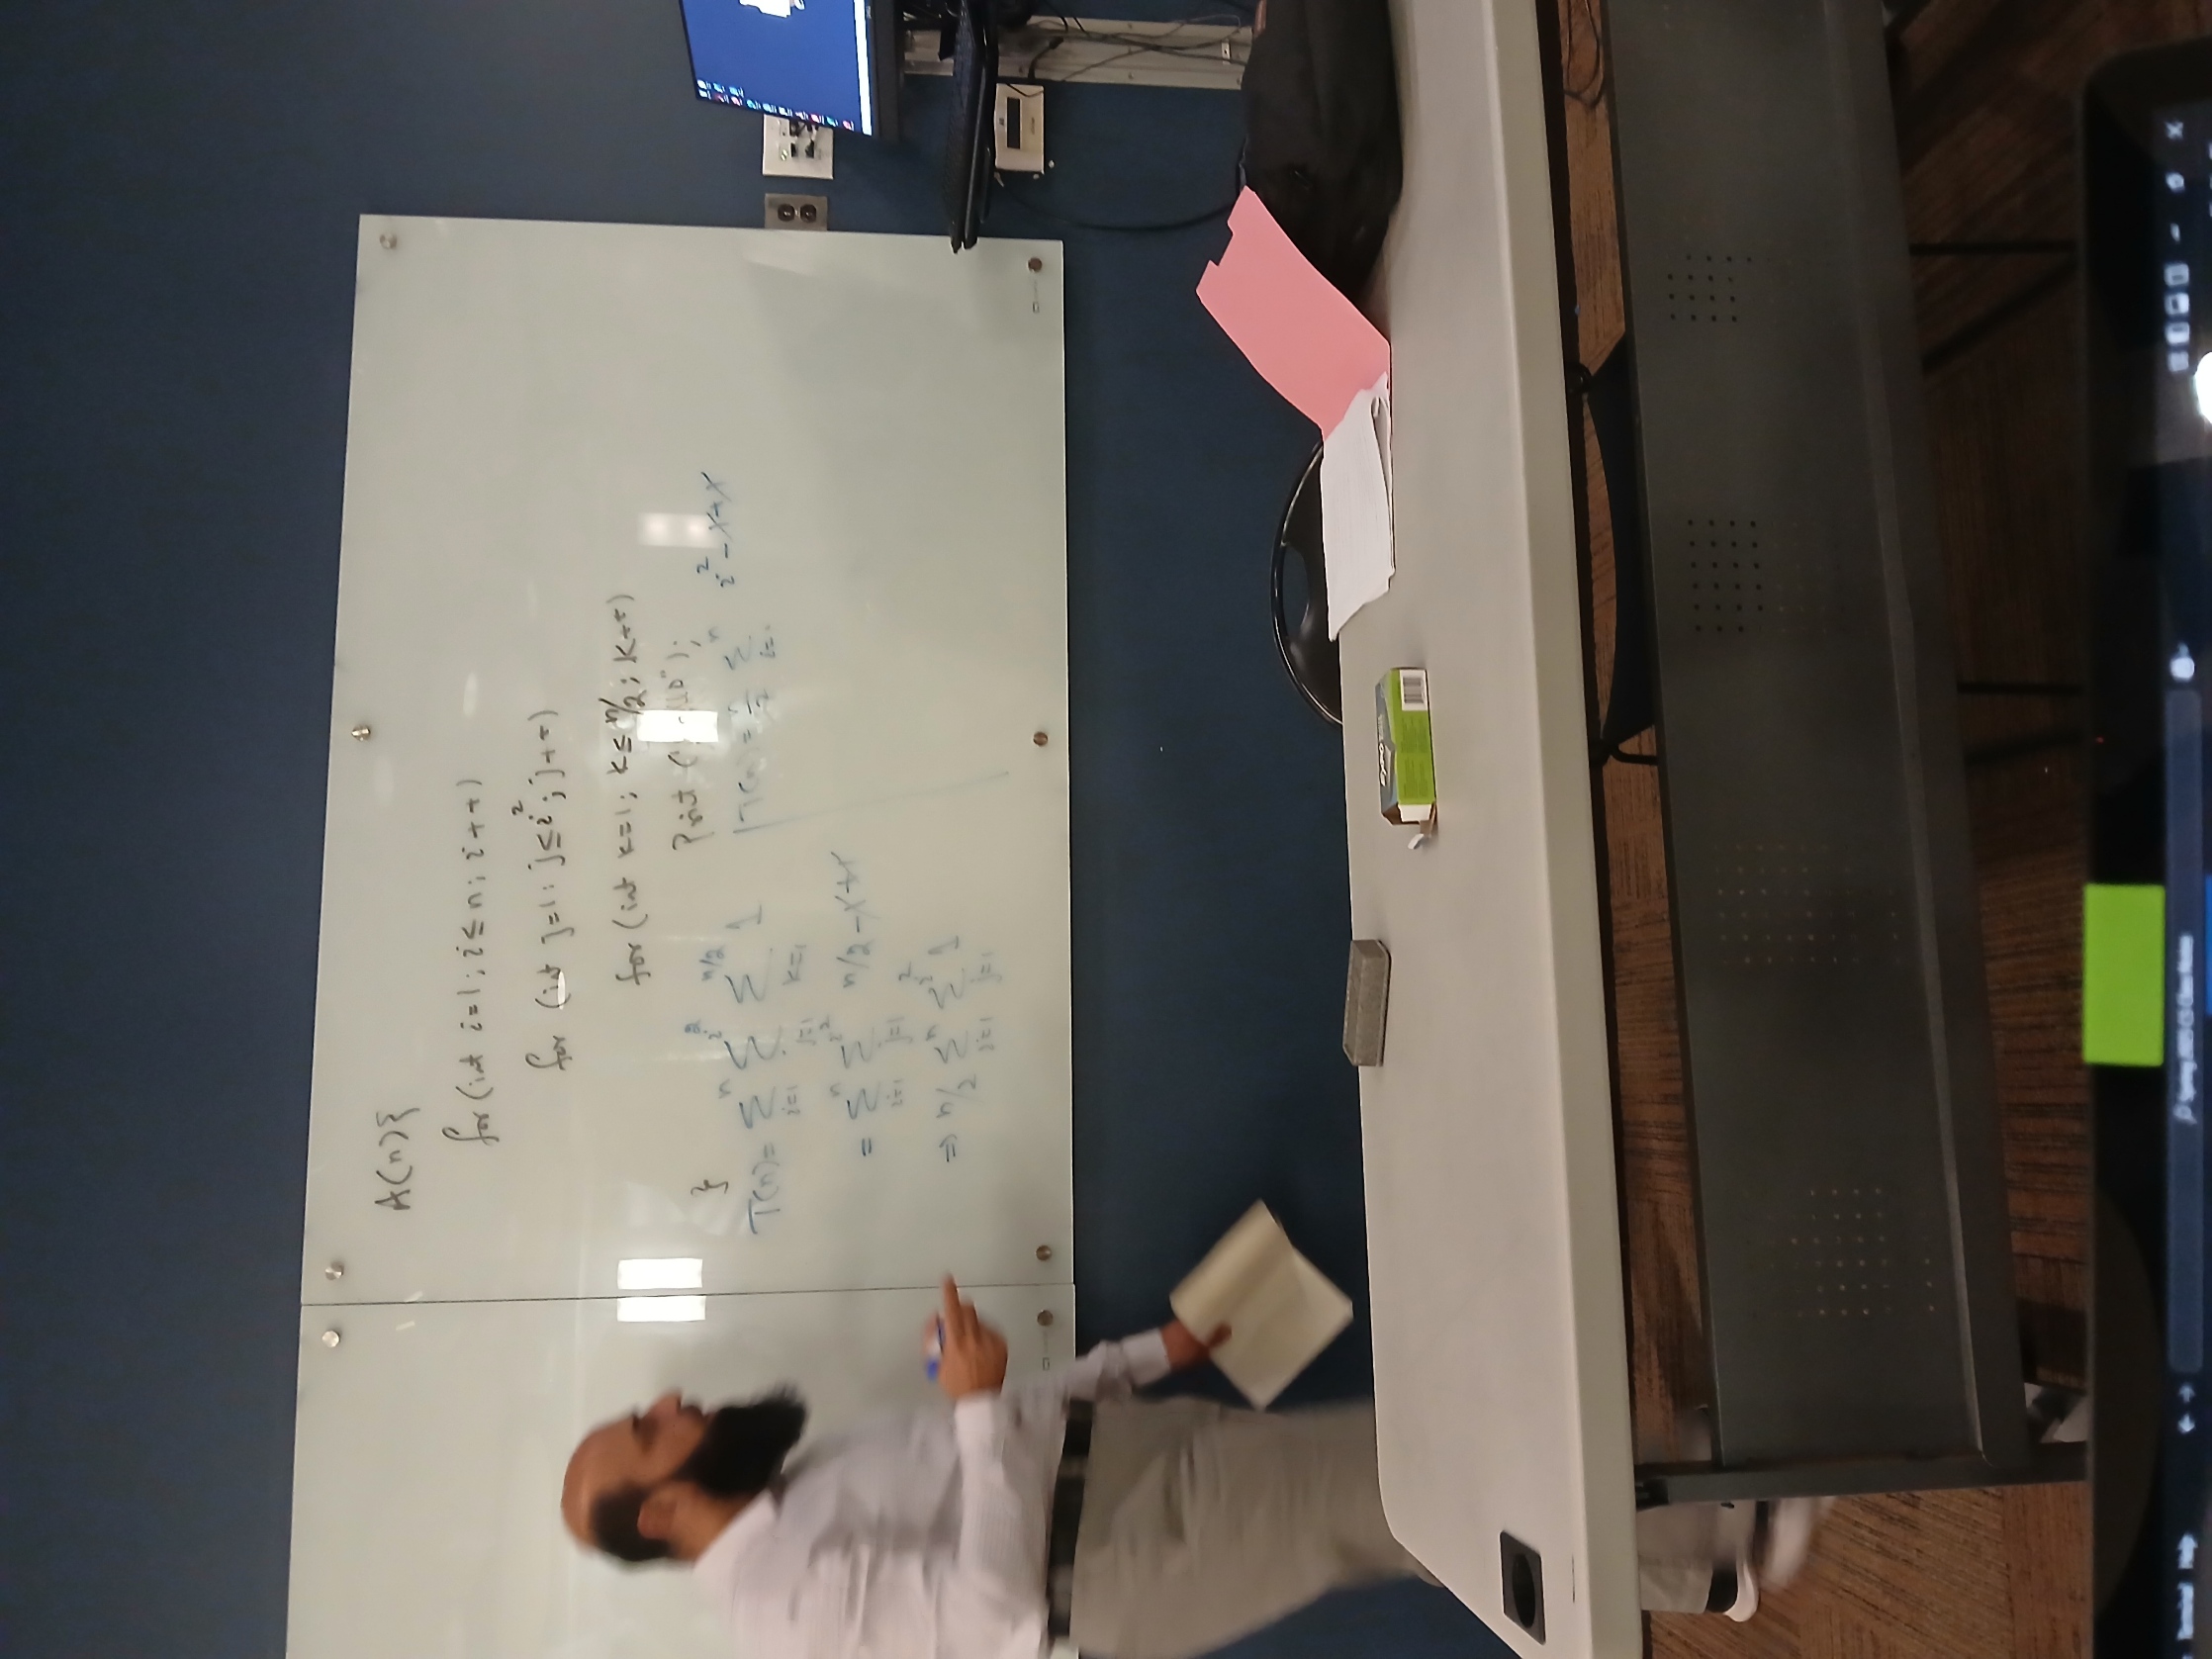 A(n){
for(int i=1; i≤n; i++)
for (int j=1; j≤i²; j++)
for(int k=1; k≤n/2; k++)
Print ( );
}
T(n)= Σ_{i=1}^{n} Σ_{j=1}^{i²} Σ_{k=1}^{n/2} 1
= Σ_{i=1}^{n} Σ_{j=1}^{i²} n/2 -1+1
⇒ n/2 Σ_{i=1}^{n} Σ_{j=1}^{i²} 1
T(n)= n/2 Σ_{i=1}^{n} i² -1+1
Terminal Help
Spring 2025 CS Class Notes